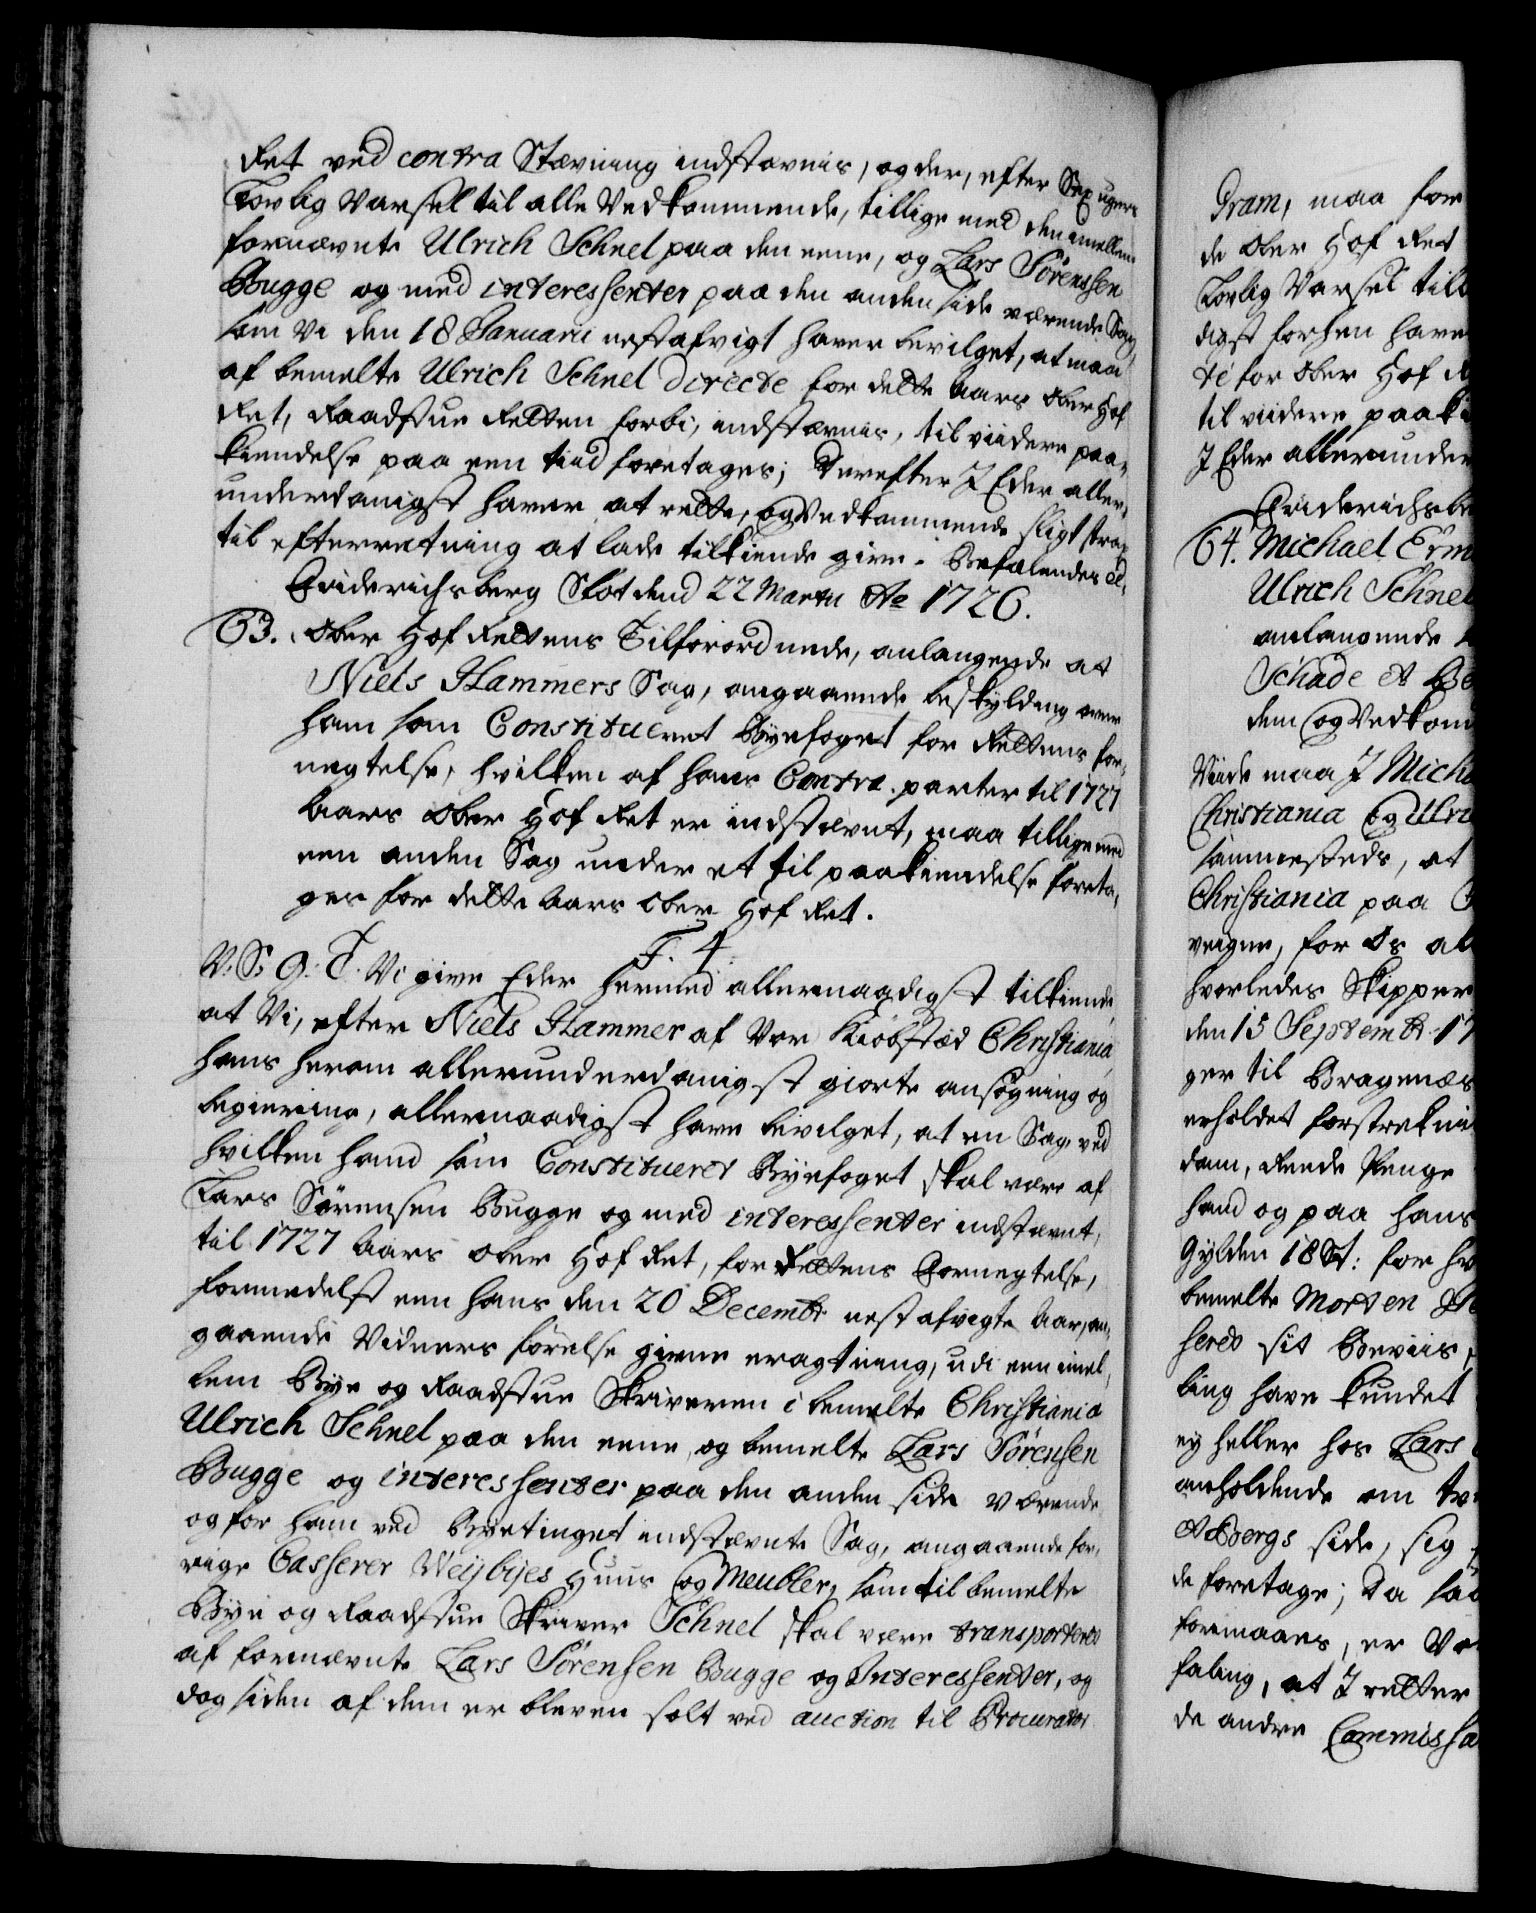 Ret ved contra Stævning indstævnis, og der, efter Sex ugers
Lovlig Varsel til alle Vedkommende, tillige med den imellem
fornævnte Ulrich Schnel paa den eene, og Lars Sörenssen
Bugge og med interessenter paa den anden side værende Sag,
som Vi den 18 Januarii nestafvigt haver bevilget, at maa
af bemelte Ulrich Schnel directe for dette Aars Ober Hof
Ret, Raadstue Retten forbi, indstævnis, til viidere paa-
kiendelse paa een tiid foretages; Derefter I Eder aller-
underdanigst haver at rette, og Vedkommende sligt strax
til efterretning at lade tilkiende give. Befalendes etc.
Friderichsberg Slot dend 22 Martii Ao 1726.
63. Ober Hof Rettens Tilforordnede, anlangende at
Niels Hammers Sag, angaaende beskylding over
ham som Constitueret Byefoget for Rettens for-
negtelse, hvilken af hans Contra-parter til 1727
Aars Ober Hof Ret er indstævnt, maa tillige med
een anden Sag under et til paakiendelse foreta-
ges for dette Aars Ober Hof Ret.
F. 4.
V: S: G: T. Vi give Eder hermed allernaadigst tilkiende,
at Vi, efter Niels Hammer af Vor Kiöbstæd Christiania
hans herom allerunderdanigst giorte ansögning og
begiering, allernaadigst have bevilget, at en Sag, ved
hvilken hand som Constitueret Byefoget skal være af
Lars Sörensen Bugge og med interessenter indstævnt,
til 1727 Aars Ober Hof Ret, for Rettens Fornegtelse,
formedelst een hans den 20 Decembr: nestafvigte Aar, an-
gaaende Vidners förelse givne eragtning, udi een imel-
lem Bye og Raadstue Skriveren i bemelte Christiania
Ulrich Schnel paa den eene, og bemelte Lars Sörensen
Bugge og interessenter paa den anden side værende
og for ham ved Byetinget indstævnte Sag, angaaende for-
rige Casserer Weijbijes Huus og Meubler, som til bemelte
Bye og Raadstue Skriver Schnel skal være transporteret
af fornævnte Lars Sörensen Bugge og Interessenter, og
dog siden af dem er bleven solt ved auction til Procurator
Pram, maa for
de Ober Hof Ret
Lovlig Varsel till
digst forhen have
te for Ober Hof R
til viidere paaki
I Eder allerunder
Friderichsbe
64. Michael Erm
Ulrich Schnel
anlangende
Schade et Be
dem og Vedkom
Viide maa I Micha
Christiania og Ulri
sammesteds, at
Christiania paa
veigne, for Os al
hvorledes Skipper
den 15 Septembr: 17
ger til Bragenæs
erholdet forstrekni
dam, Reede Penge
hand og paa hans
Gylden 18 St: for hv
bemelte Morten
seret sit Beviis,
ling have kundet
ey heller hos Lars
anholdende om
Abergs side, sig
de foretage; Da saa
formaaes, er Vo
faling, at I retter
de andre Commissa